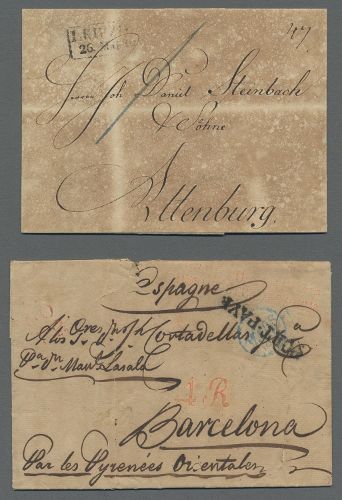 LEIPZ
26.
47
Herrn Joh Daniel Steinbach
& Söhne
Altenburg.
Espagne
A los Sres
Cortadellas
PORT-PAYÉ
1.R
Barcelona
Par les Pyrenées Orientales